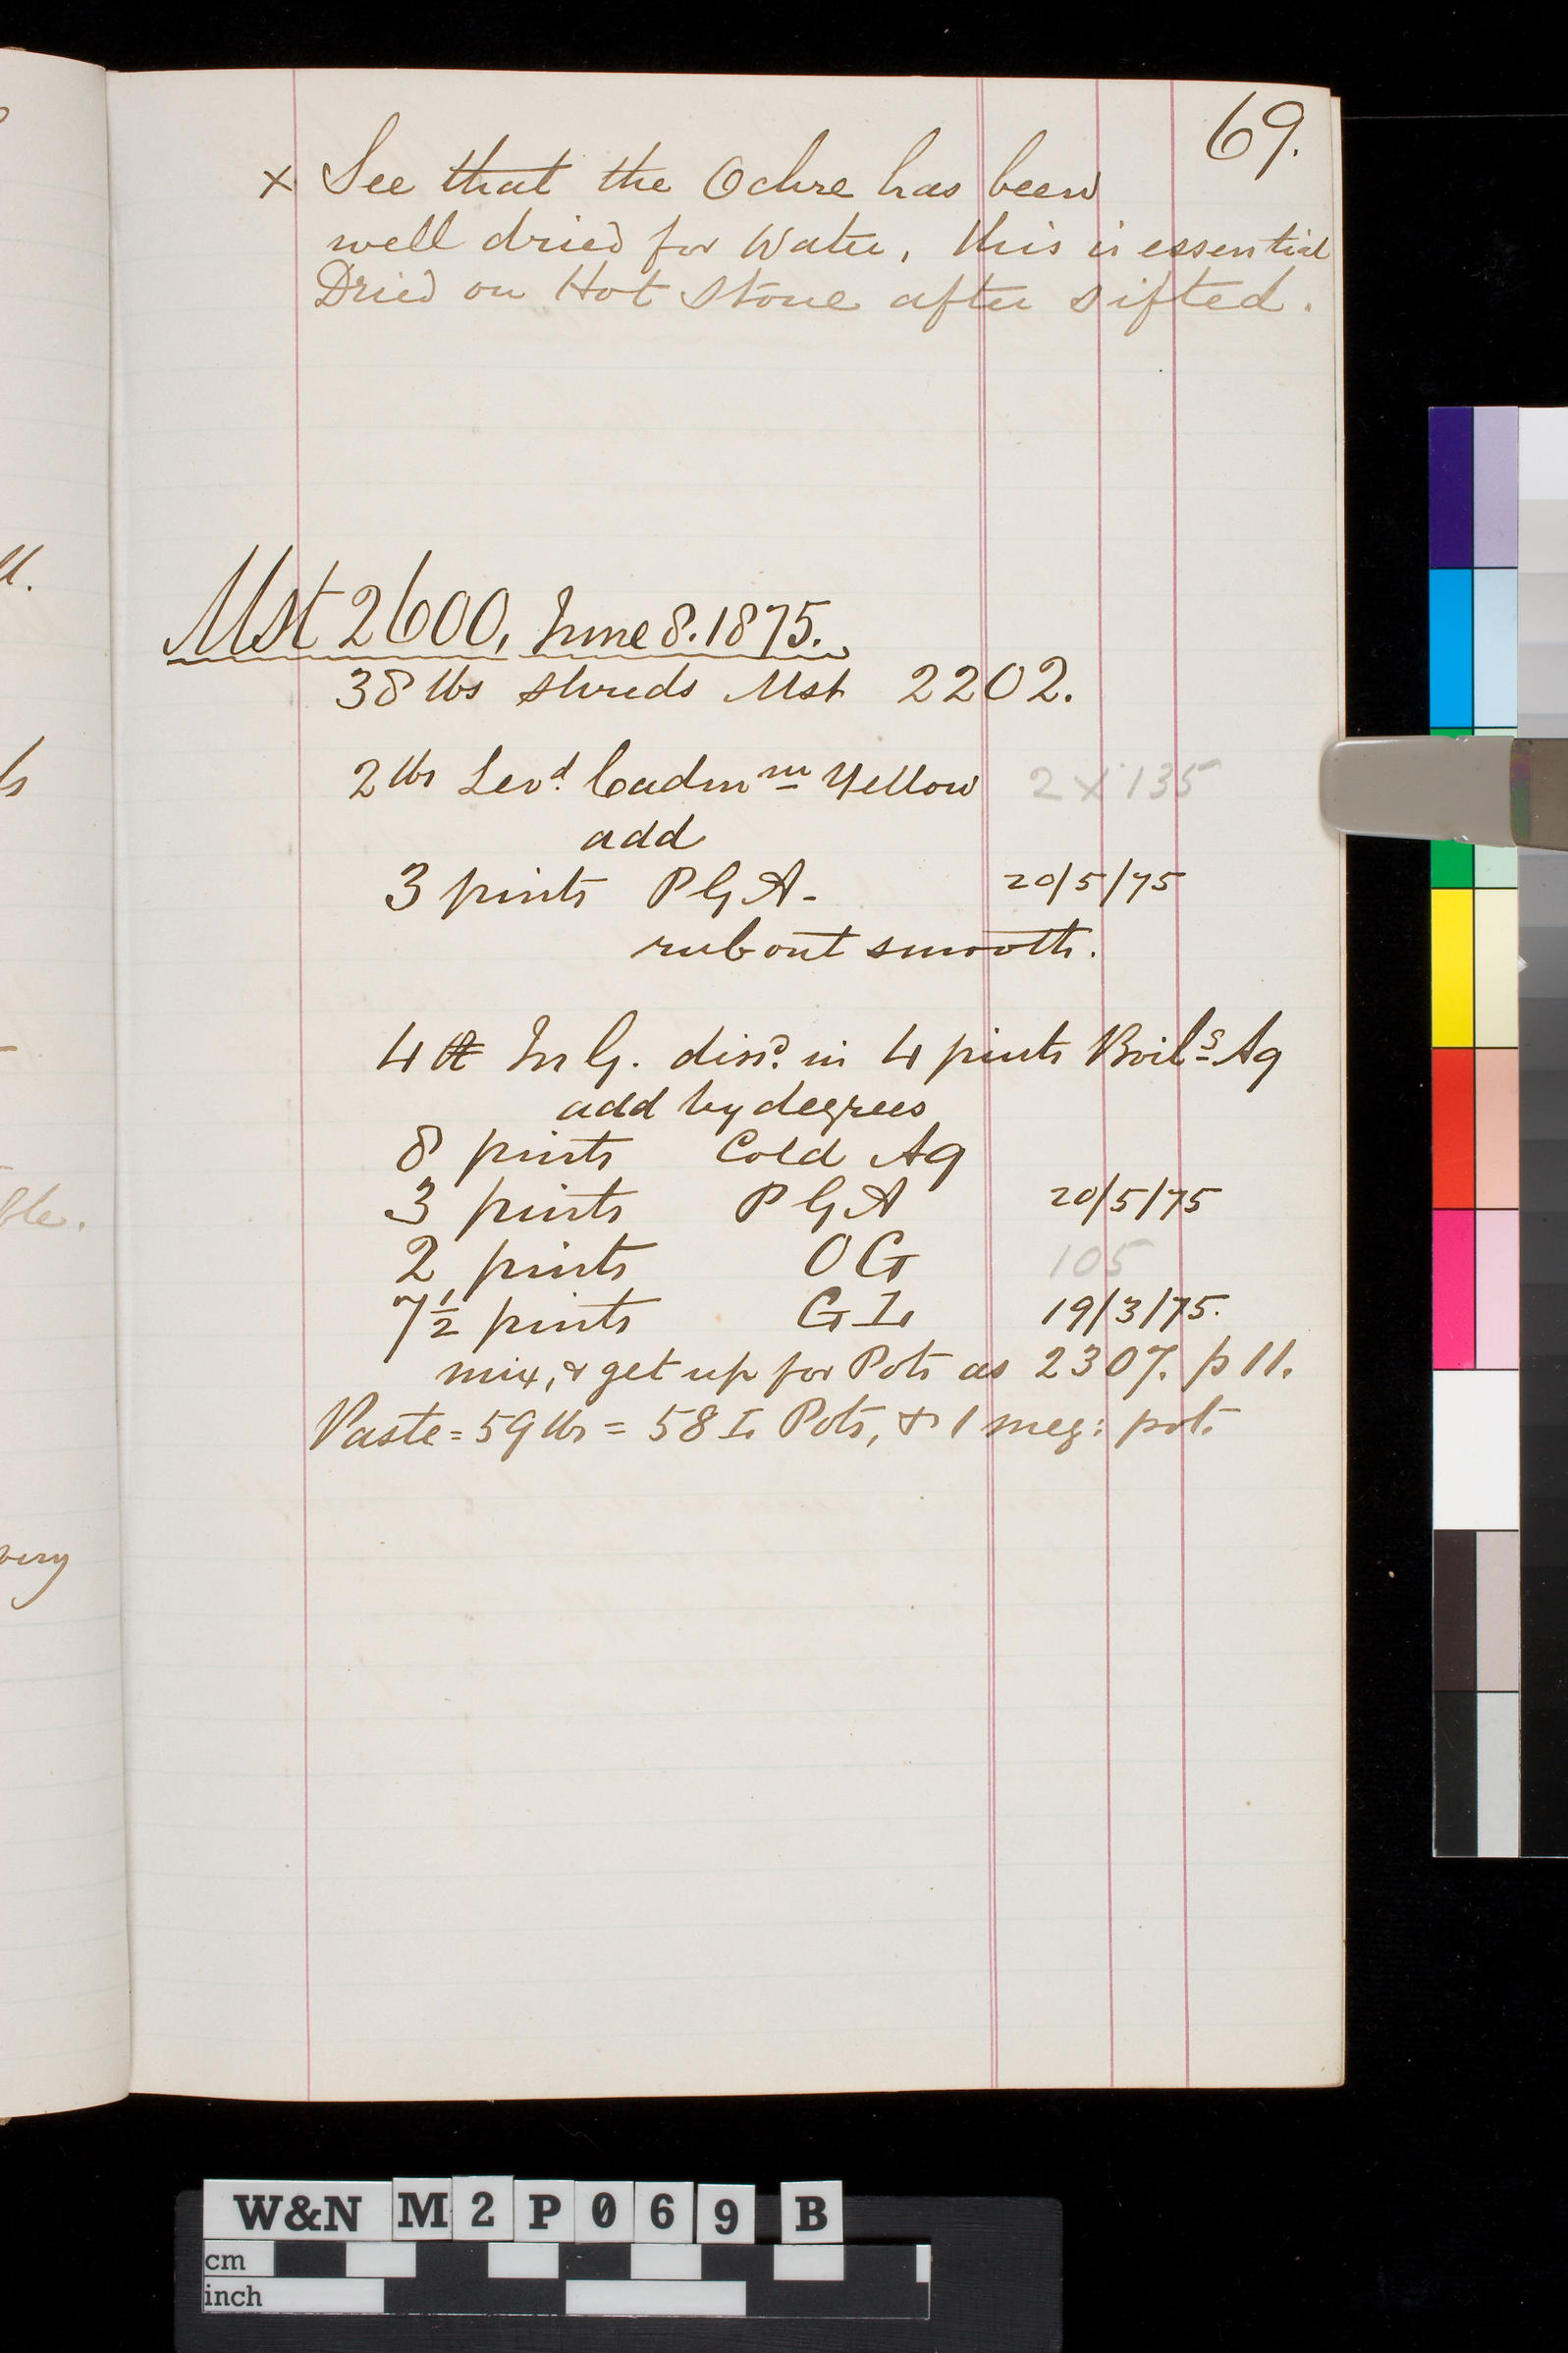 69.
x See that the Ochre has been
well dried for Water, this is essential
Dried on Hot Stone after sifted.
Mst 2600, June 8. 1875.
38 lbs shreds Mst 2202.
2 lbs Levd. Cadmm Yellow 2 x 135
add
3 pints P G A - 20/5/75
rub out smooth.
4 ℔ G. dissd. in 4 pints Boilg Aq
add by degrees
8 pints Cold Aq
3 pints P G A 20/5/75
2 pints O G 105
7½ pints G L 19/3/75.
mix, & get up for Pots as 2307. p 11.
Paste = 59 lbs = 58 L Pots, & 1 meg: pot.
ble.
very
W&N M2P069 B
cm
inch